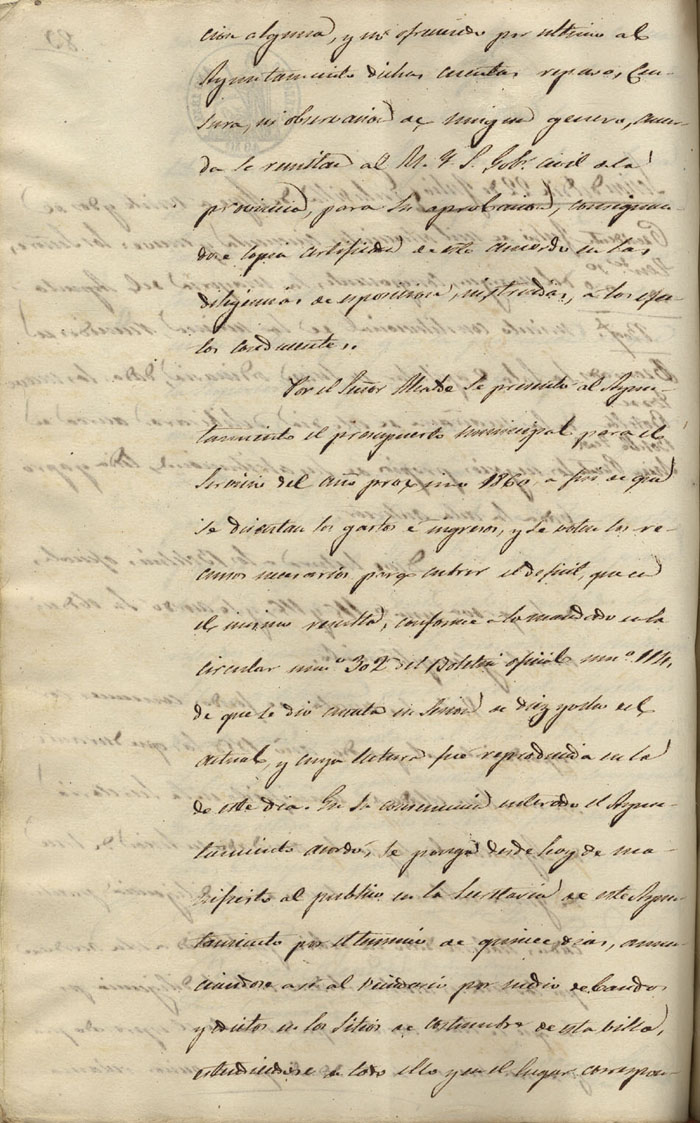 cion alguna, y no ofreciendo por ultimo al
Ayuntamiento dichas cuentas reparo, cen-
sura, ni observacion de ningun genero, acuer-
da se remitan al M. Y. S. Gobr. civil de la
provincia para su aprobacion, consignan-
dose copia certificada de este acuerdo en las
diligencias de esposicion, instruidas, a los efec-
tos conducentes.
Por el Señor Alcalde se presentó al Ayun-
tamiento el presupuesto municipal para el
servicio del año procsimo 1860, a fin de que
se discutan los gastos e ingresos, y se voten los re-
cursos necesarios para cubrir el deficit, que en
el mismo resulta, conforme a lo mandado en la
circular numº 302 del Boletin oficial numº 114,
de que se dio cuenta en sesion de diez y ocho del
actual, y cuya lectura fué reproducida en la
de este dia. En su consecuencia enterado el Ayun-
tamiento acordó, se ponga desde hoy de ma-
nifiesto al publico en la Secretaria de este Ayun-
tamiento por el termino de quince dias, anun-
ciandose asi al vecindario por medio de bandos
y edictos en los sitios de costumbre de esta villa,
estendiendose de todo ello y en el lugar correspon-